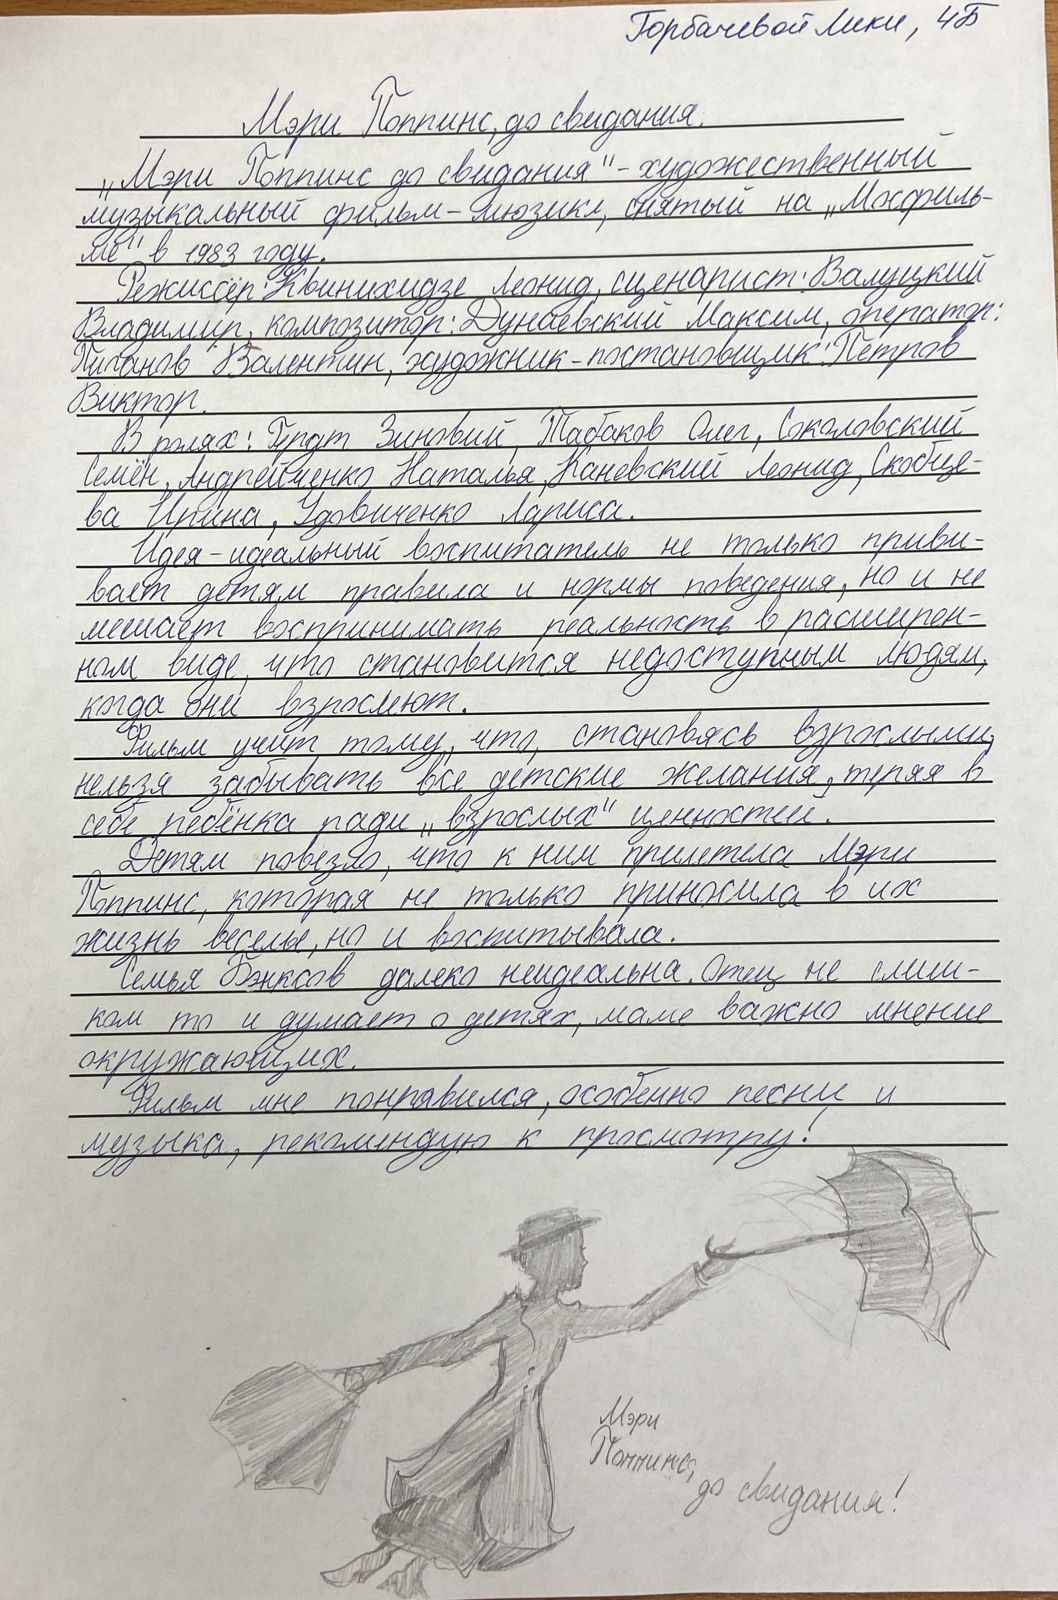 Горбачевой Лики, 4Б
Мэри Поппинс, до свидания.
„Мэри Поппинс до свидания" - художественный
музыкальный фильм-мюзикл, снятый на „Мосфиль-
ме" в 1983 году.
Режиссёр: Квинихидзе Леонид, сценарист: Валуцкий
Владимир, композитор: Дунаевский Максим, оператор:
Пиганов Валентин, художник-постановщик: Петров
Виктор.
В ролях: Гердт Зиновий, Табаков Олег, Соколовский
Семён, Андрейченко Наталья, Каневский Леонид, Скобце-
ва Ирина, Удовиченко Лариса.
Идея - идеальный воспитатель не только приви-
вает детям правила и нормы поведения, но и не
мешает воспринимать реальность в расширен-
ном виде, что становится недоступным людям,
когда они взрослеют.
Фильм учит тому, что, становясь взрослыми,
нельзя забывать все детские желания, теряя в
себе ребёнка ради „взрослых" ценностей.
Детям повезло, что к ним прилетела Мэри
Поппинс, которая не только приносила в их
жизнь веселье, но и воспитывала.
Семья Бэнксов далеко неидеальна. Отец не слиш-
ком то и думает о детях, маме важно мнение
окружающих.
Фильм мне понравился, особенно песни и
музыка, рекомендую к просмотру!
Мэри
Поппинс,
до свидания!